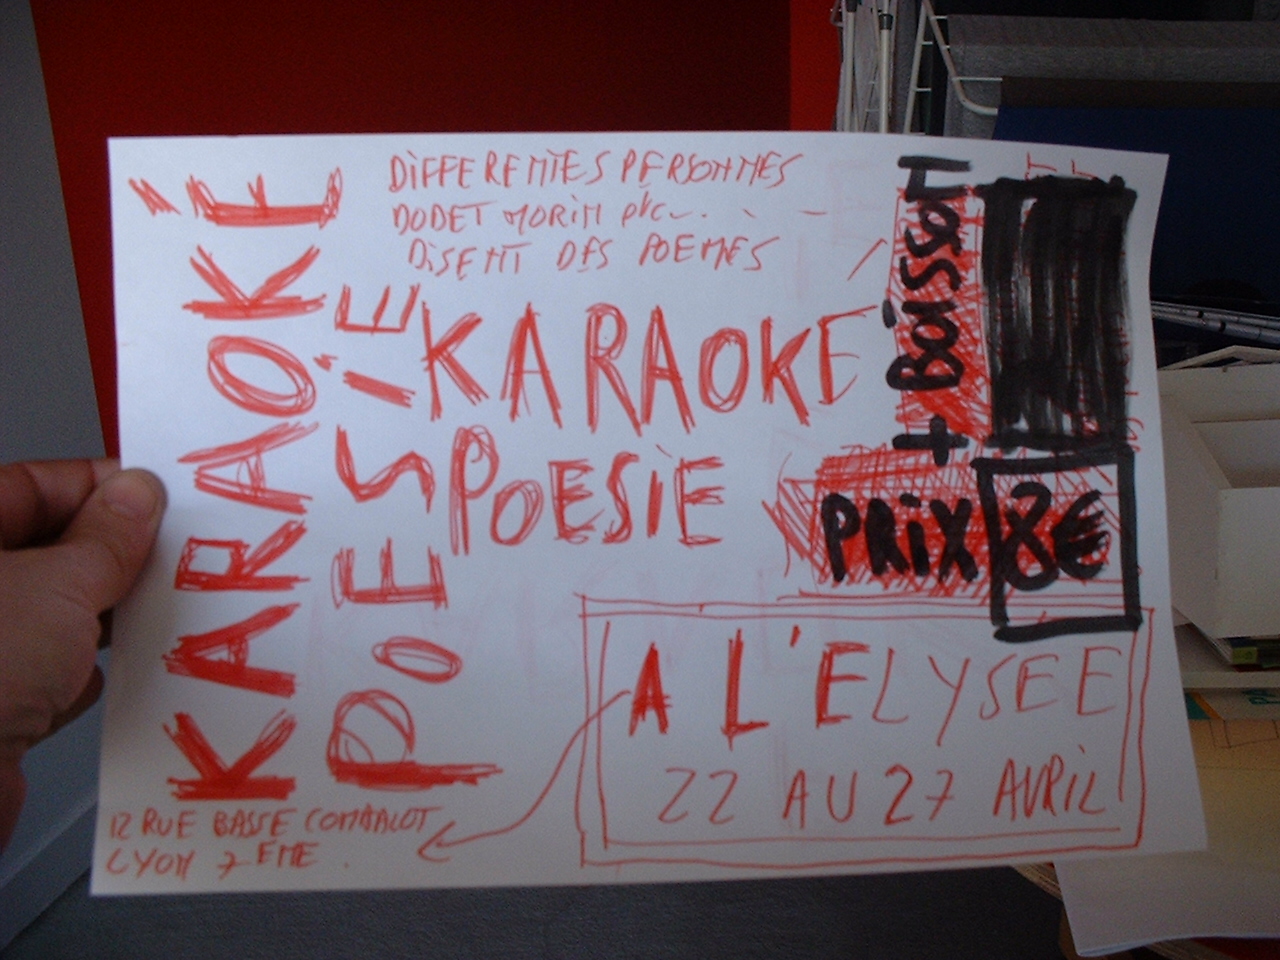 DIFFERENTES PERSONNES
DODET MORIN
DISENT DES POEMES
KARAOKÉ
POESIE
KARAOKE
POESIE
+ BOiSSON
PRiX 8€
A L'ELYSEE
22 AU 27 AVRiL
12 RUE BASSE COMBALOT
LYON 7 EME.